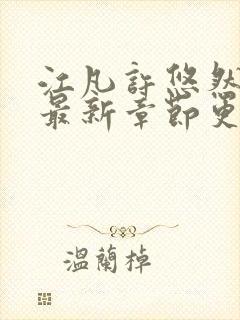 江凡許悠然
最新章節更
溫蘭掉